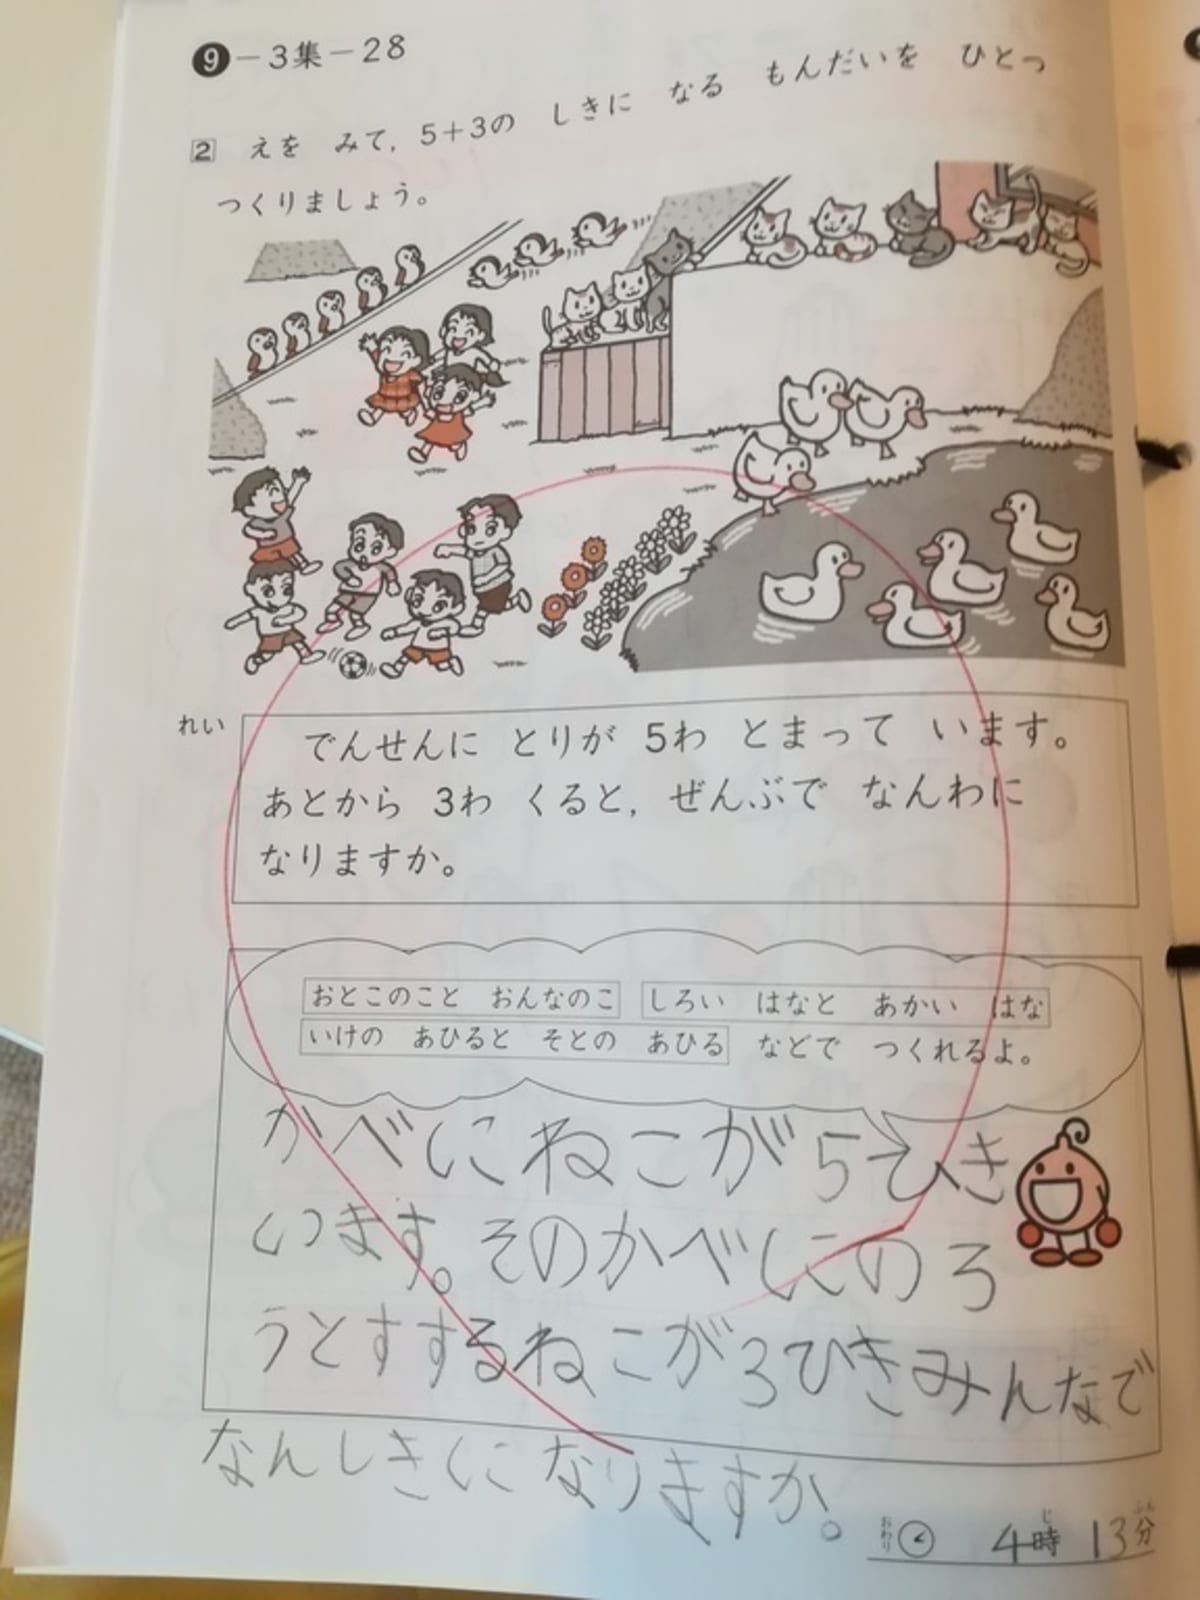 9-3集-28
2 えを みて, 5+3の しきに なる もんだいを ひとつ
つくりましょう。
れい
でんせんに とりが 5わ とまって います。
あとから 3わ くると, ぜんぶで なんわに
なりますか。
おとこのこと おんなのこ しろい はなと あかい はな
いけの あひると そとの あひる などで つくれるよ。
かべにねこが5ひき
います。そのかべにのろ
うとすするねこが3ひきみんなで
なんしきくになりますか。
おわり 4時 13分
じ ふん